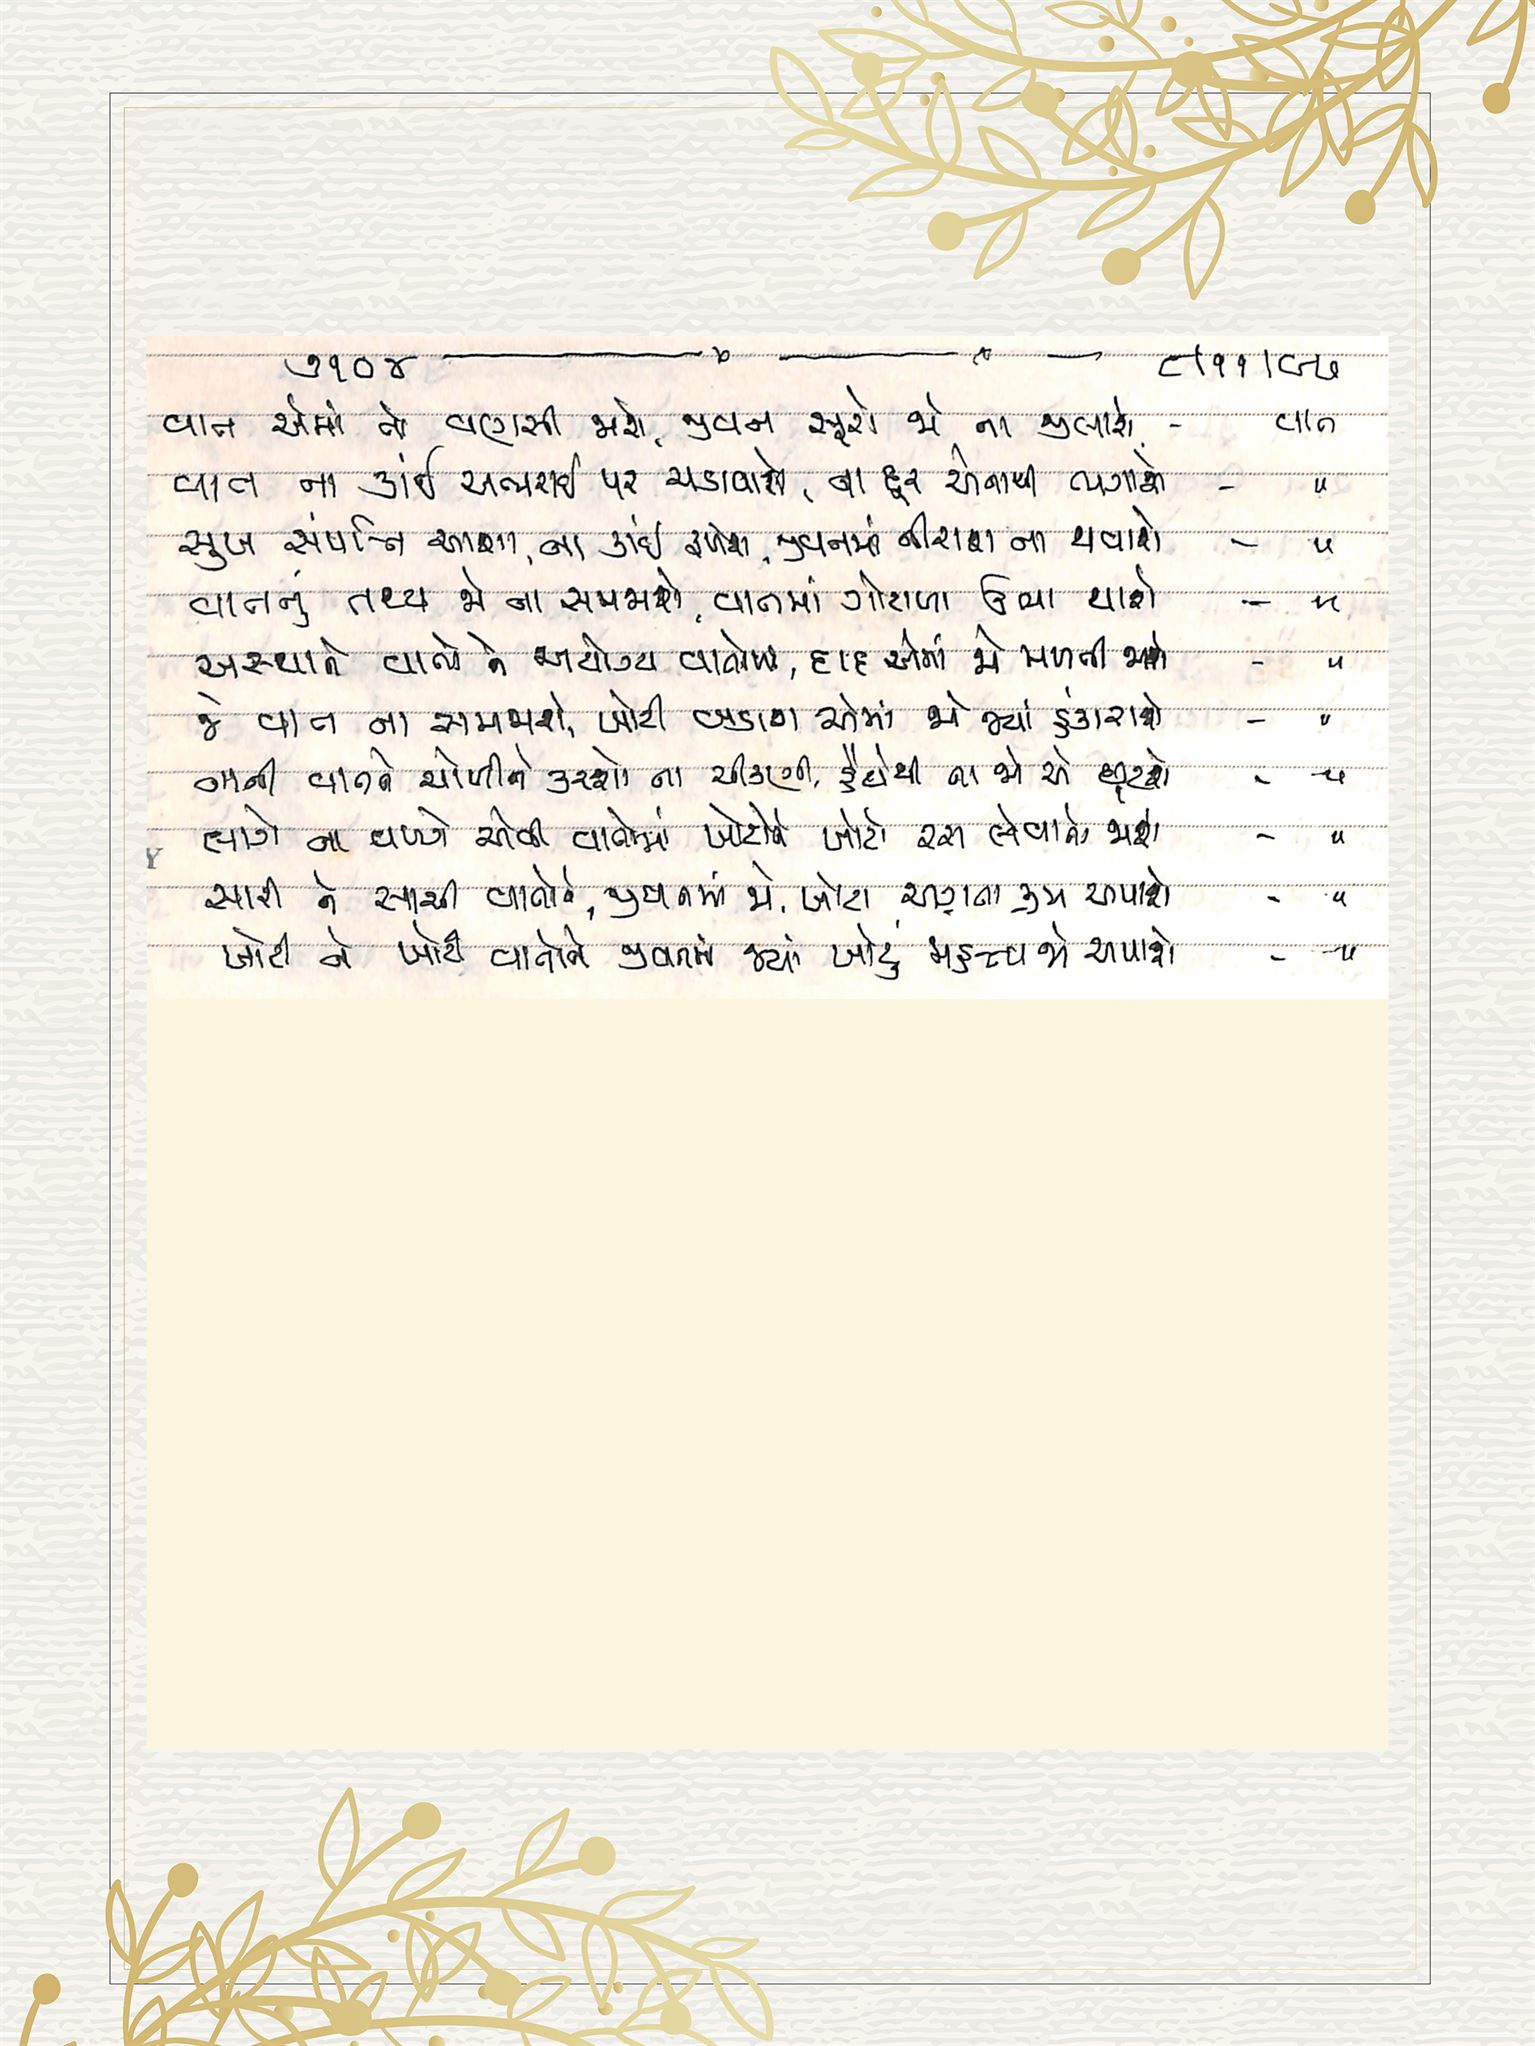 ૭૧૦૪ ૮/૧૧/૯૭
વાત એમાં તો વણસી જાશે, જીવન સૂરો જો ના જીલાશે - વાત
વાત ના કાંઈ અભરાઈ પર ચડાવાશે, ના દૂર એનાથી ભગાશે - "
સુખ સંપત્તિ આશા, ના કાંઈ ફળશે, જીવનમાં નીરાશ ના થવાશે - "
વાતનું તથ્ય જો ના સમજાશે, વાતમાં ગોટાળા ઊભા થાશે - "
અસ્થાને વાતો ને અયોગ્ય વાતોમાં, દાદ એમાં જો મળતી જાશે - "
જે વાત ના સમજાશે, ખોટી બડાશ એમાં જો જ્યાં હંકારાશે - "
નાની વાતને ચોળીને કરશો ના ચીકણી, હૈયેથી ના જો એ છૂટશે - "
લાગે ના વળગે એવી વાતોમાં ખોટોને ખોટો રસ લેવાતો જાશે - "
સારી ને સાચી વાતોને, જીવનમાં જો, ખોટા અગ્રતા ક્રમ અપાશે - "
ખોટી ને ખોટી વાતોને જીવનમાં જ્યાં ખોટું મહત્ત્વ જો અપાશે - "